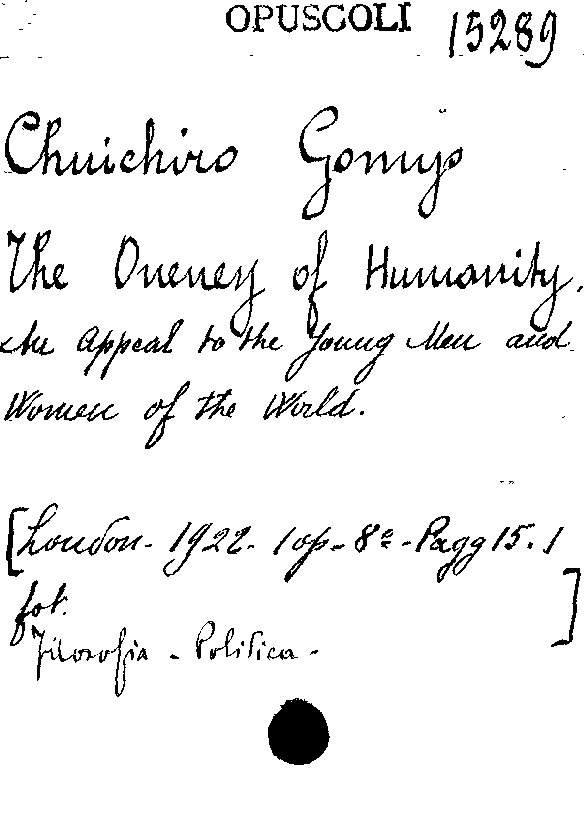 OPUSCOLI 15289
Chuichiro Gomyo
The Oneney of Humanity.
An Appeal to the Young Men and
Women of the World.
[London - 1922 - 1 op - 8º - Pagg 15. 1
fot. ]
Filosofia - Politica -